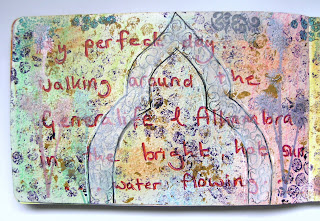 my perfect day ...
walking around the
Generalife & Alhambra
in the bright, hot sun,
water flowing